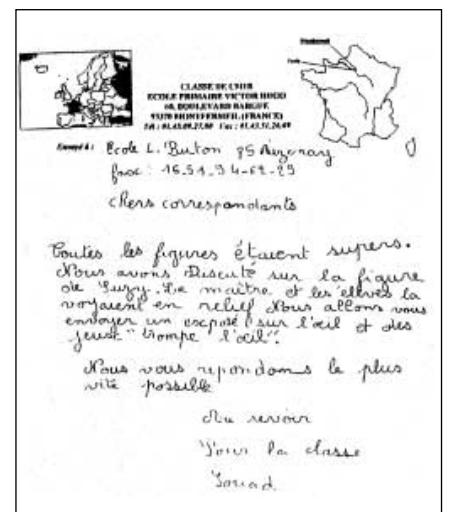 CLASSE DE CM1B
ECOLE PRIMAIRE VICTOR HUGO
BOULEVARD BARGUE
93370 MONTFERMEIL (FRANCE)
Envoyé à : Ecole L. Buton 85 Aizenay
chers correspondants
Toutes les figures étaient supers.
Nous avons Discuté sur la figure
de Suzy. Le maître et les élèves la
voyaient en relief Nous allons vous
envoyer un exposé sur l'œil et des
jeux "trompe l'œil".
Nous vous répondons le plus
vite possible
Au revoir
Pour la classe
Souad